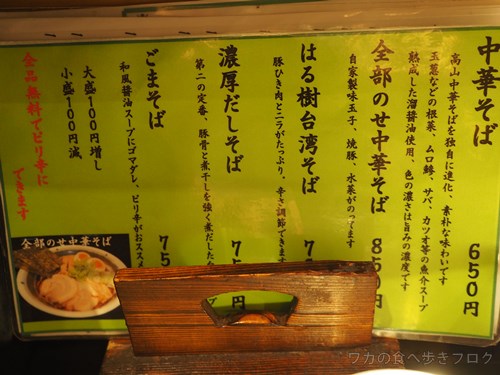 中華そば
650円
高山中華そばを独自に進化、素朴な味わいです
玉葱などの根菜、ムロ鯵、サバ、カツオ等の魚介スープ
熟成した溜醤油使用、色の濃さは旨みの濃度です
全部のせ中華そば
850円
自家製味玉子、焼豚、水菜がのってます
はる樹台湾そば
豚ひき肉とニラがたっぷり。辛さ調節できます
濃厚だしそば
75
円
第二の定番、豚骨と煮干しを強く煮だした
ごまそば
75
和風醤油スープにゴマダレ、ピリ辛がおススメ
大盛100円増し
小盛100円減
全品無料でピリ辛に
できます
全部のせ中華そば
ワカの食べ歩きブログ